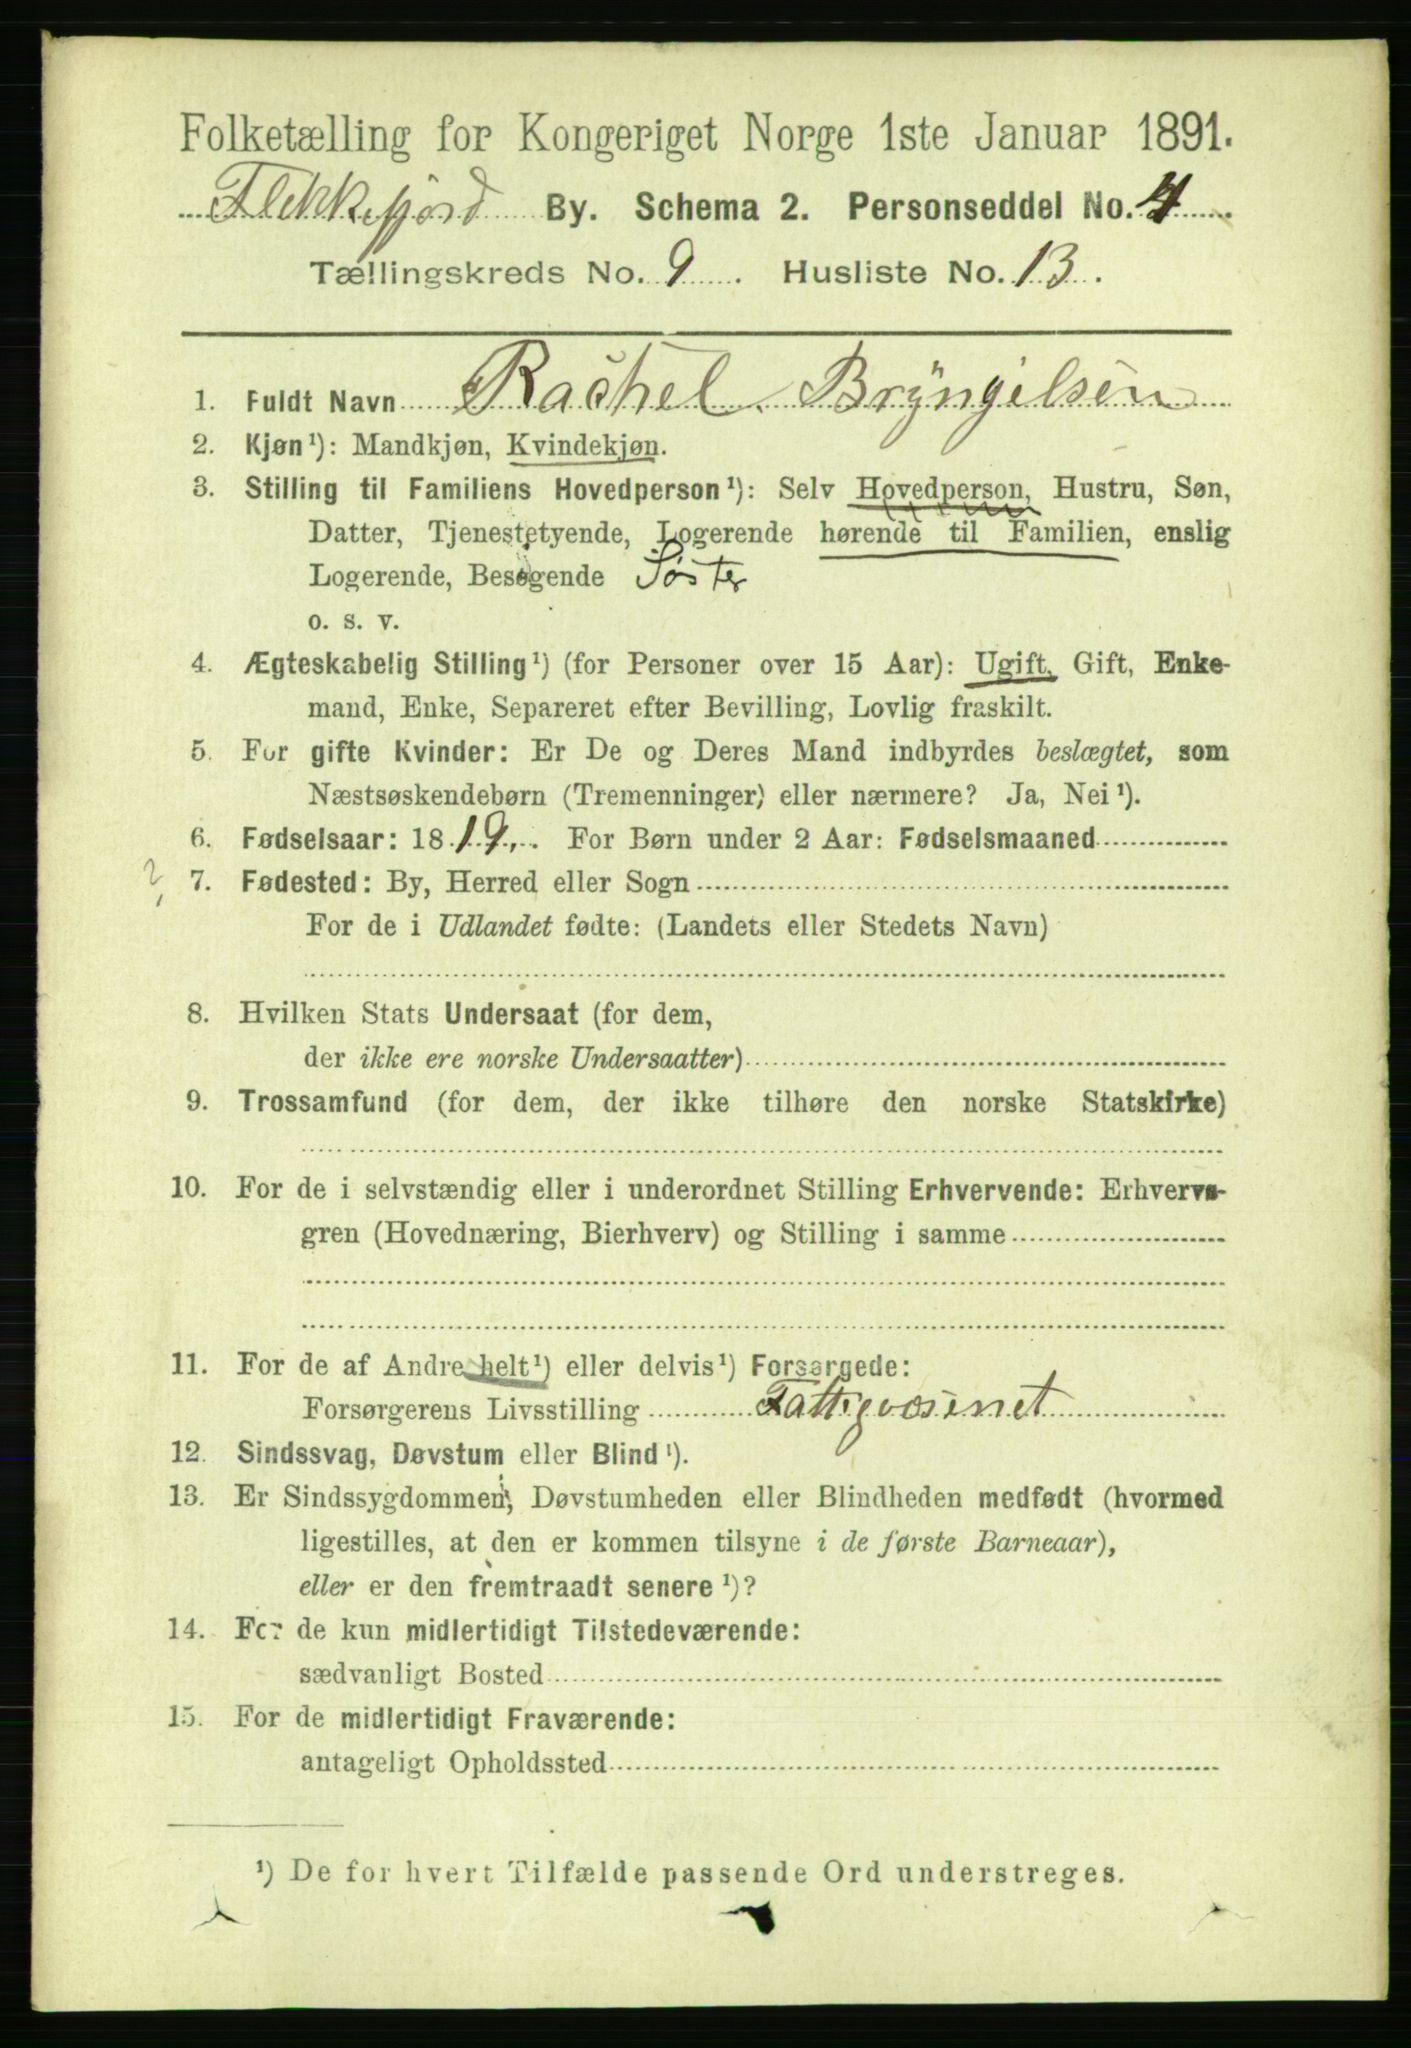 Folketælling for Kongeriget Norge 1ste Januar 1891.
Flekkefjord By. Schema 2. Personseddel No. 4
Tællingskreds No. 9. Husliste No. 13.
1. Fuldt Navn Rachel Bryngelsen
2. Kjøn¹): Mandkjøn, Kvindekjøn.
3. Stilling til Familiens Hovedperson¹): Selv Hovedperson, Hustru, Søn,
Datter, Tjenestetyende, Logerende hørende til Familien, enslig
Logerende, Besøgende Søster
o. s. v.
4. Ægteskabelig Stilling¹) (for Personer over 15 Aar): Ugift, Gift, Enke-
mand, Enke, Separeret efter Bevilling, Lovlig fraskilt.
5. For gifte Kvinder: Er De og Deres Mand indbyrdes beslægtet, som
Næstsøskendebørn (Tremenninger) eller nærmere? Ja, Nei¹).
6. Fødselsaar: 1819. For Børn under 2 Aar: Fødselsmaaned
? 7. Fødested: By, Herred eller Sogn
For de i Udlandet fødte: (Landets eller Stedets Navn)
8. Hvilken Stats Undersaat (for dem,
der ikke ere norske Undersaatter)
9. Trossamfund (for dem, der ikke tilhøre den norske Statskirke)
10. For de i selvstændig eller i underordnet Stilling Erhvervende: Erhvervs-
gren (Hovednæring, Bierhverv) og Stilling i samme
11. For de af Andre helt¹) eller delvis¹) Forsørgede:
Forsørgerens Livsstilling Fattigvæsenet
12. Sindssvag, Døvstum eller Blind¹).
13. Er Sindssygdommen, Døvstumheden eller Blindheden medfødt (hvormed
ligestilles, at den er kommen tilsyne i de første Barneaar),
eller er den fremtraadt senere¹)?
14. For de kun midlertidigt Tilstedeværende:
sædvanligt Bosted
15. For de midlertidigt Fraværende:
antageligt Opholdssted
¹) De for hvert Tilfælde passende Ord understreges.